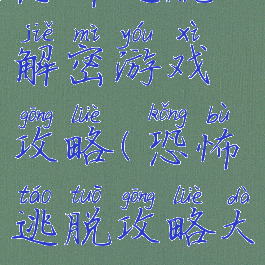 jiě mì yóu xì
解密游戏
gōng lüè kǒng bù
攻略(恐怖
táo tuō gōng lüè dà
逃脱攻略大